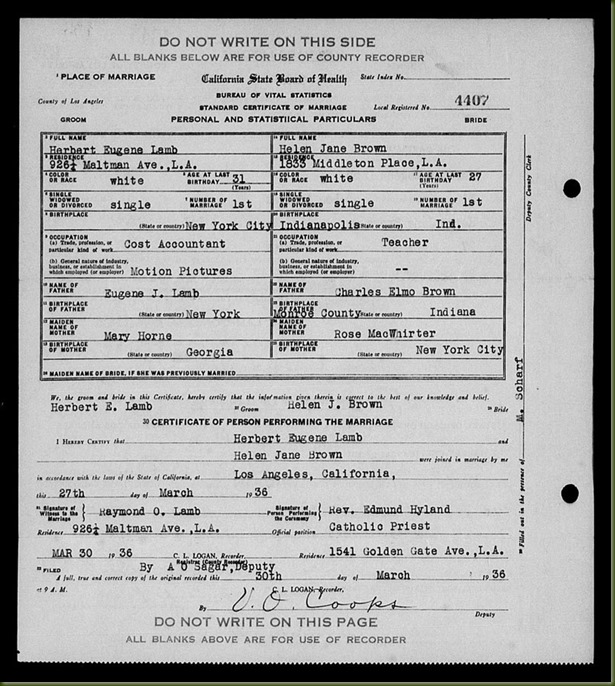 DO NOT WRITE ON THIS SIDE
ALL BLANKS BELOW ARE FOR USE OF COUNTY RECORDER
1 PLACE OF MARRIAGE California State Board of Health State Index No.
BUREAU OF VITAL STATISTICS
County of Los Angeles STANDARD CERTIFICATE OF MARRIAGE Local Registered No. 4407
GROOM PERSONAL AND STATISTIICAL PARTICULARS BRIDE
FULL NAME Herbert Eugene Lamb FULL NAME Helen Jane Brown
RESIDENCE 926½ Maltman Ave., L.A. RESIDENCE 1833 Middleton Place, L.A.
COLOR OR RACE white AGE AT LAST BIRTHDAY 31 (Years) COLOR OR RACE white AGE AT LAST BIRTHDAY 27 (Years)
SINGLE WIDOWED OR DIVORCED single NUMBER OF MARRIAGE 1st SINGLE WIDOWED OR DIVORCED single NUMBER OF MARRIAGE 1st
BIRTHPLACE (State or country) New York City BIRTHPLACE Indianapolis (State or country) Ind.
OCCUPATION OCCUPATION
(a) Trade, profession, or particular kind of work Cost Accountant (a) Trade, profession, or particular kind of work Teacher
(b) General nature of industry, business, or establishment in which employed (or employer) Motion Pictures (b) General nature of industry, business, or establishment in which employed (or employer) --
NAME OF FATHER Eugene J. Lamb NAME OF FATHER Charles Elmo Brown
BIRTHPLACE OF FATHER (State or country) New York BIRTHPLACE OF FATHER Monroe County (State or country) Indiana
MAIDEN NAME OF MOTHER Mary Horne MAIDEN NAME OF MOTHER Rose MacWhirter
BIRTHPLACE OF MOTHER (State or country) Georgia BIRTHPLACE OF MOTHER (State or country) New York City
MAIDEN NAME OF BRIDE, IF SHE WAS PREVIOUSLY MARRIED
We, the groom and bride in this Certificate, hereby certify that the information given therein is correct to the best of our knowledge and belief.
Herbert E. Lamb Groom Helen J. Brown Bride
30 CERTIFICATE OF PERSON PERFORMING THE MARRIAGE
I HEREBY CERTIFY that Herbert Eugene Lamb and
Helen Jane Brown were joined in marriage by me
in accordance with the laws of the State of California, at Los Angeles, California,
this 27th day of March 1936
Signature of Witness to the Marriage Raymond O. Lamb Signature of Person Performing the Ceremony Rev. Edmund Hyland
Residence 926½ Maltman Ave., L.A. Official position Catholic Priest
MAR 30 1936 C. L. LOGAN, Recorder Residence 1541 Golden Gate Ave., L.A.
Registrar (County Recorder)
FILED By A C Sagar, Deputy
A full, true and correct copy of the original recorded this 30th day of March 1936
at 9 A.M. C. L. LOGAN, Recorder,
By V. O. Coops Deputy
DO NOT WRITE ON THIS PAGE
ALL BLANKS ABOVE ARE FOR USE OF RECORDER
Filled out in the presence of M. Scharf Deputy County Clerk